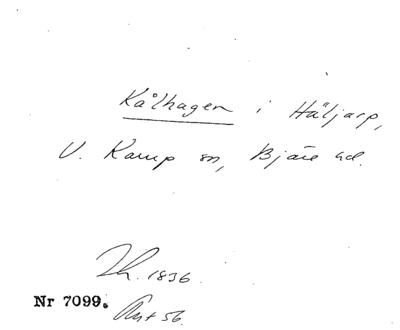 Kålhagen i Häljarp,
V. Karup sn, Bjäre hd.
Th. 1836.
Nr 7099.
56.